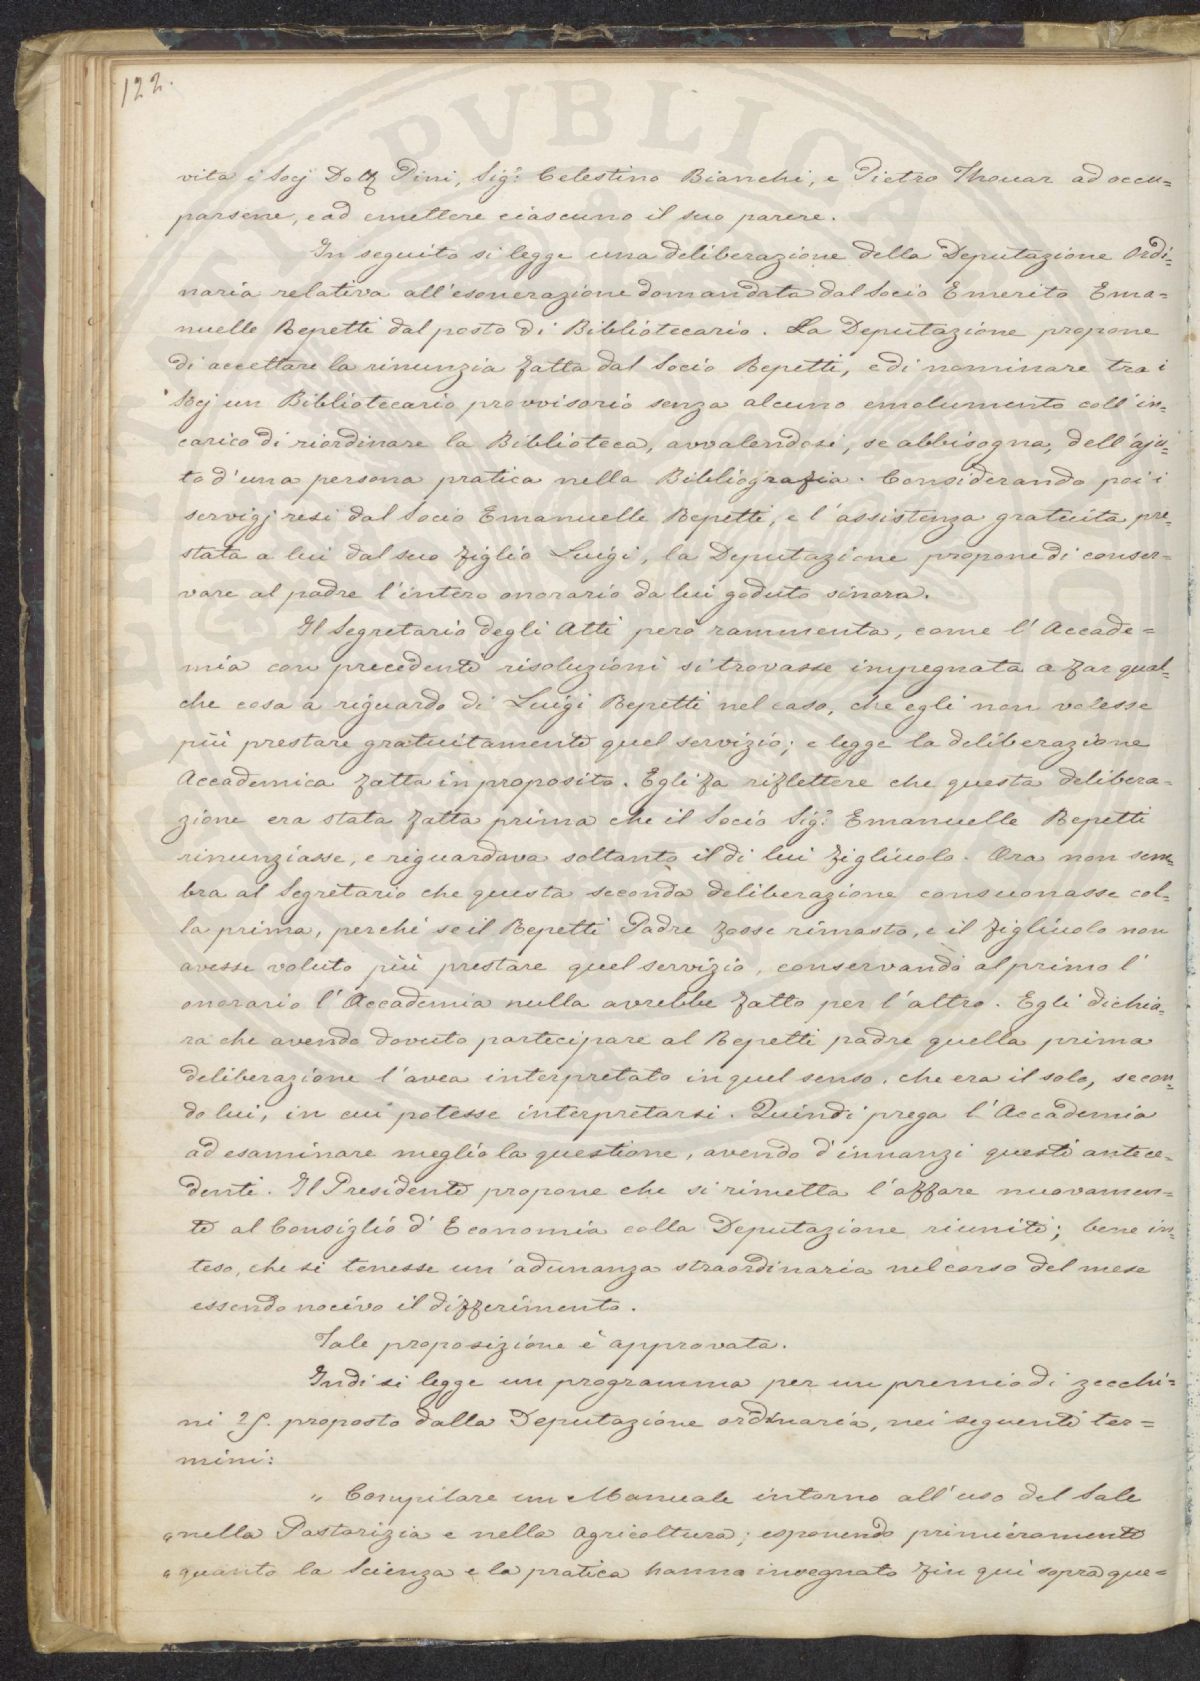 122.
vita i Socj Dott Pini, Sig.r Celestino Bianchi, e Pietro Thouar ad occu=
parsene, e ad emettere ciascuno il suo parere.
In seguito si legge una deliberazione della Deputazione Ordi=
naria relativa all'esonerazione domandata dal Socio Emerito Ema=
nuelle Repetti dal posto di Bibliotecario. La Deputazione propone
di accettare la rinunzia fatta dal Socio Repetti, e di nominare tra i
Socj un Bibliotecario provvisorio senza alcuno emolumento coll'in=
carico di riordinare la Biblioteca, avvalendosi, se abbisogna, dell'aju=
to d'una persona pratica nella Bibliografia. Considerando poi i
servigj resi dal Socio Emanuelle Repetti, e l'assistenza gratuita pre=
stata a lui dal suo figlio Luigi, la Deputazione propone di conser=
vare al padre l'intero onorario da lui goduto sinora.
Il Segretario degli Atti però rammenta, come l'Accade=
mia con precedenti risoluzioni si trovasse impegnata a far qual=
che cosa a riguardo di Luigi Repetti nel caso, che egli non volesse
più prestare gratuitamente quel servizio; e legge la deliberazione
Accademica fatta in proposito. Egli fa riflettere che questa delibera=
zione era stata fatta prima che il Socio Sig.r Emanuelle Repetti
rinunziasse, e riguardava soltanto il di lui figliuolo. Ora non sem=
bra al Segretario che questa seconda deliberazione consuonasse col=
la prima, perchè se il Repetti Padre fosse rimasto, e il figliuolo non
avesse voluto più prestare quel servizio, conservando al primo l'
onorario l'Accademia nulla avrebbe fatto per l'altro. Egli dichia=
ra che avendo dovuto partecipare al Repetti padre quella prima
deliberazione l'avea interpretato in quel senso, che era il solo, secon=
do lui, in cui potesse interpretarsi. Quindi prega l'Accademia
ad esaminare meglio la questione, avendo d'innanzi questi antece=
denti. Il Presidente propone che si rimetta l'affare nuovamen=
te al Consiglio d'Economia colla Deputazione riuniti; bene in=
teso, che si tenesse un'adunanza straordinaria nel corso del mese
essendo nocivo il differimento.
Tale proposizione è approvata.
Indi si legge un programma per un premio di zecchi=
ni 25. proposto dalla Deputazione ordinaria, nei seguenti ter=
mini:
„ Compilare un Manuale intorno all'uso del Sale
„ nella Pastorizia e nella Agricoltura; esponendo primieramente
„ quanto la Scienza e la pratica hanno insegnato fin qui sopra que=